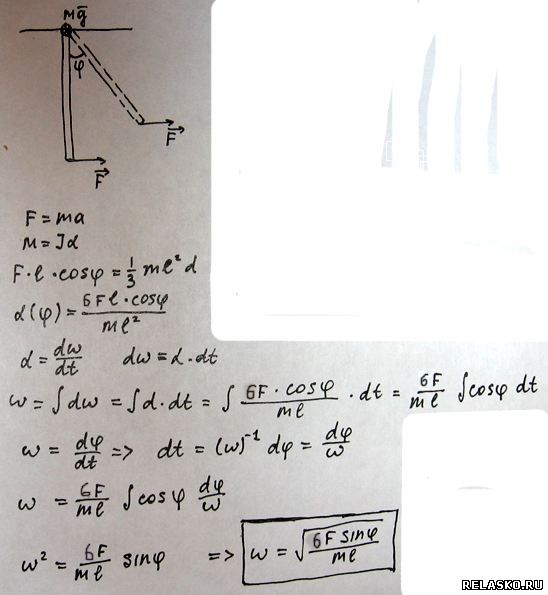 Mg̅
φ
F⃗
F⃗
F = ma
M = Jα
F·l·cosφ = 1/3 ml² α
α(φ) = 6Fl·cosφ / ml²
α = dω/dt    dω = α·dt
ω = ∫dω = ∫α·dt = ∫ 6F·cosφ / ml · dt = 6F/ml ∫cosφ dt
ω = dφ/dt => dt = (ω)⁻¹ dφ = dφ/ω
ω = 6F/ml ∫cosφ dφ/ω
ω² = 6F/ml sinφ => ω = √(6F sinφ / ml)
RELASKO.RU